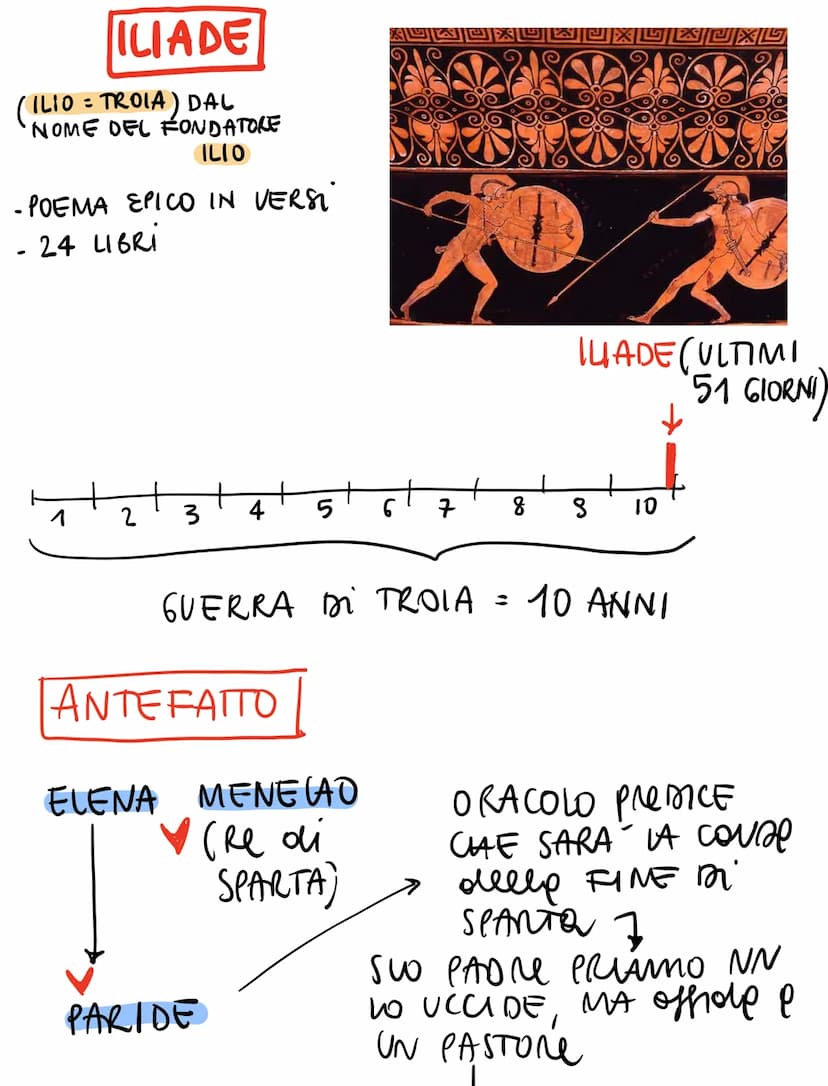 ILIADE
(ILIO = TROIA) DAL
NOME DEL FONDATORE
ILIO
- POEMA EPICO IN VERSI
- 24 LIBRI
ILIADE (ULTIMI
51 GIORNI)
1 2 3 4 5 6 7 8 9 10
GUERRA DI TROIA = 10 ANNI
ANTEFATTO
ELENA MENELAO
(Re di
SPARTA)
PARIDE
ORACOLO PREDICE
CHE SARA' LA CAUSA
della FINE DI
SPARTA
SUO PADRE PRIAMO NN
LO UCCIDE, MA affida a
UN PASTORE